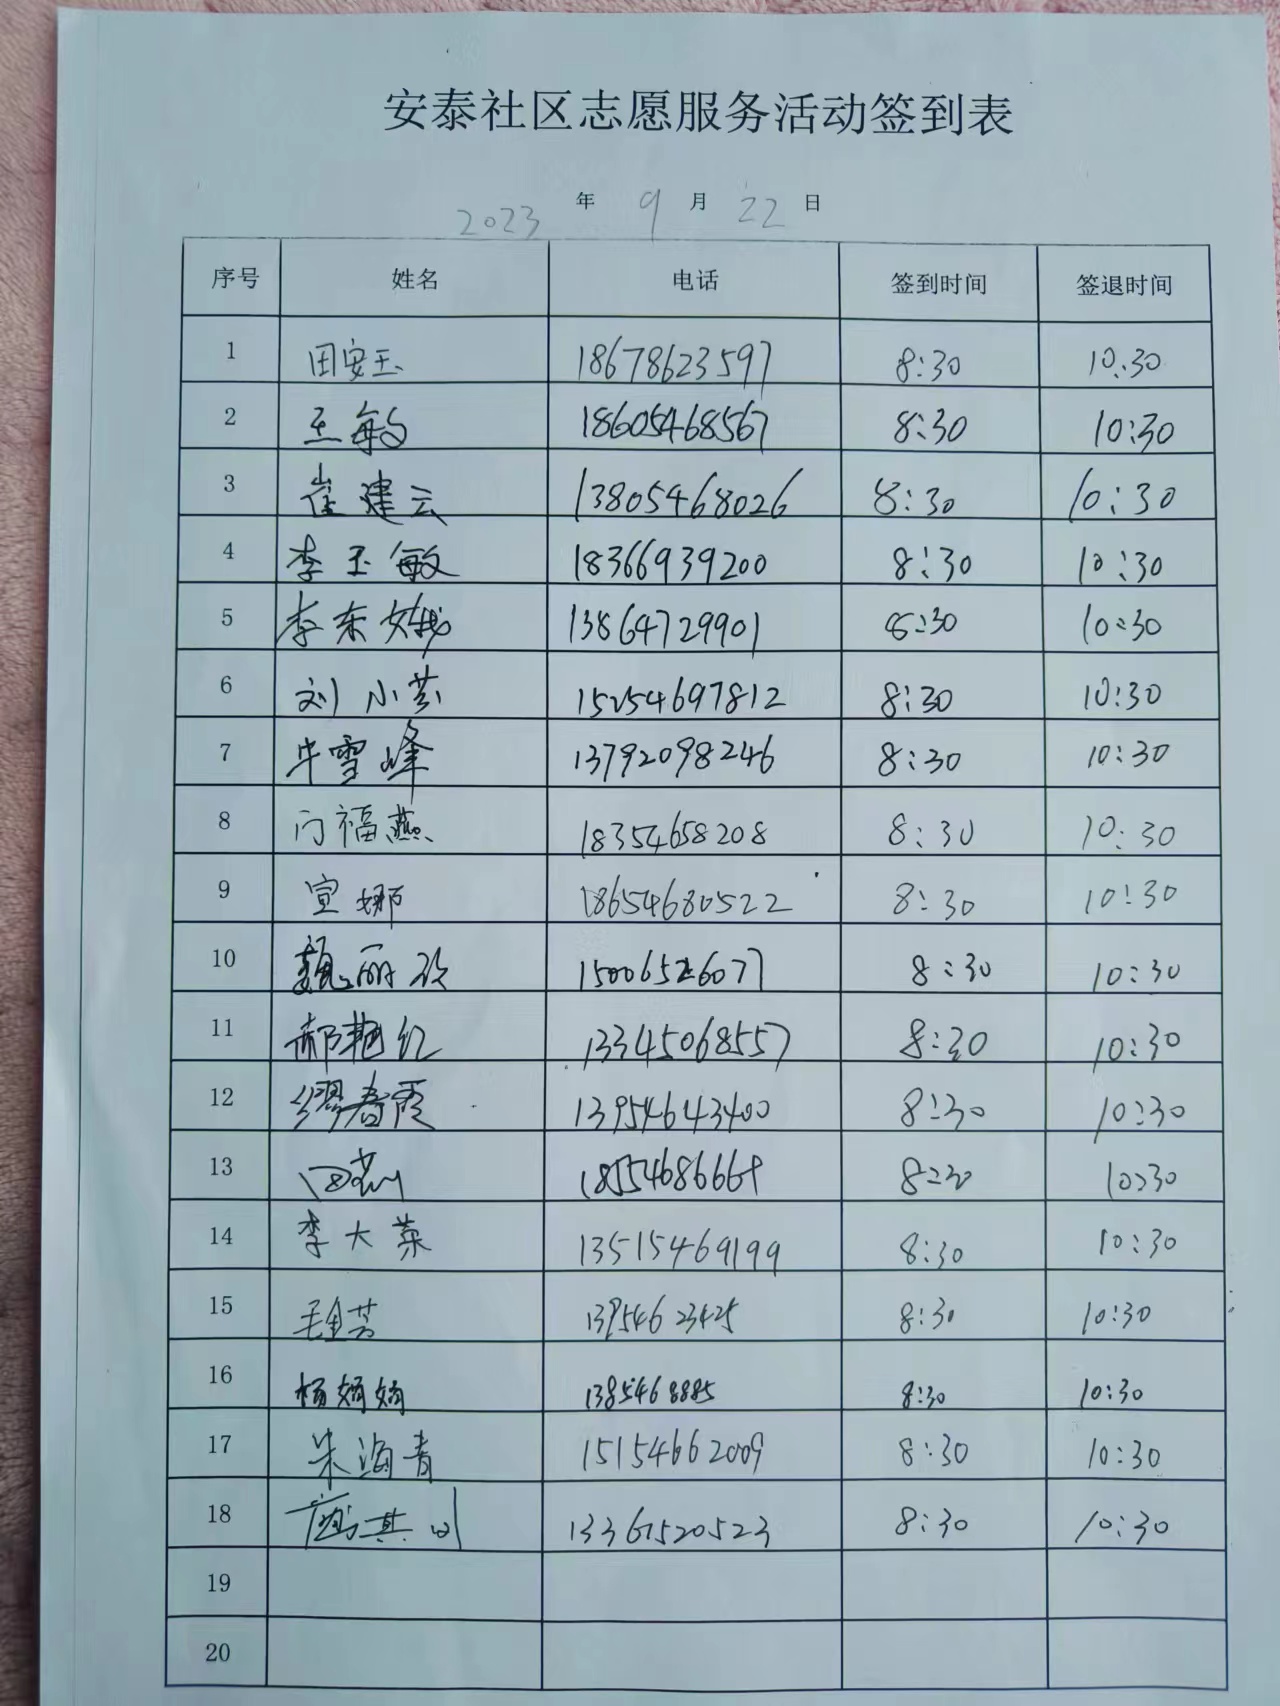 安泰社区志愿服务活动签到表
2023 年 9 月 22 日
序号 姓名 电话 签到时间 签退时间
1 田安玉 18678623597 8:30 10:30
2 王敏 18605468567 8:30 10:30
3 崔建云 13805468026 8:30 10:30
4 李玉敏 18366939200 8:30 10:30
5 李东娥 13864729901 8:30 10:30
6 刘小芬 15254697812 8:30 10:30
7 牛雪峰 13792098246 8:30 10:30
8 门福燕 18354658208 8:30 10:30
9 宣娜 18654680522 8:30 10:30
10 魏丽 15006526077 8:30 10:30
11 郝艳红 13345068557 8:30 10:30
12 缪春霞 13954643400 8:30 10:30
13 田 18554686669 8:30 10:30
14 李大英 13515469199 8:30 10:30
15 毛金芳 13954623425 8:30 10:30
16 杨娟娟 1385468885 8:30 10:30
17 朱海青 15154662009 8:30 10:30
18 13361520523 8:30 10:30
19
20